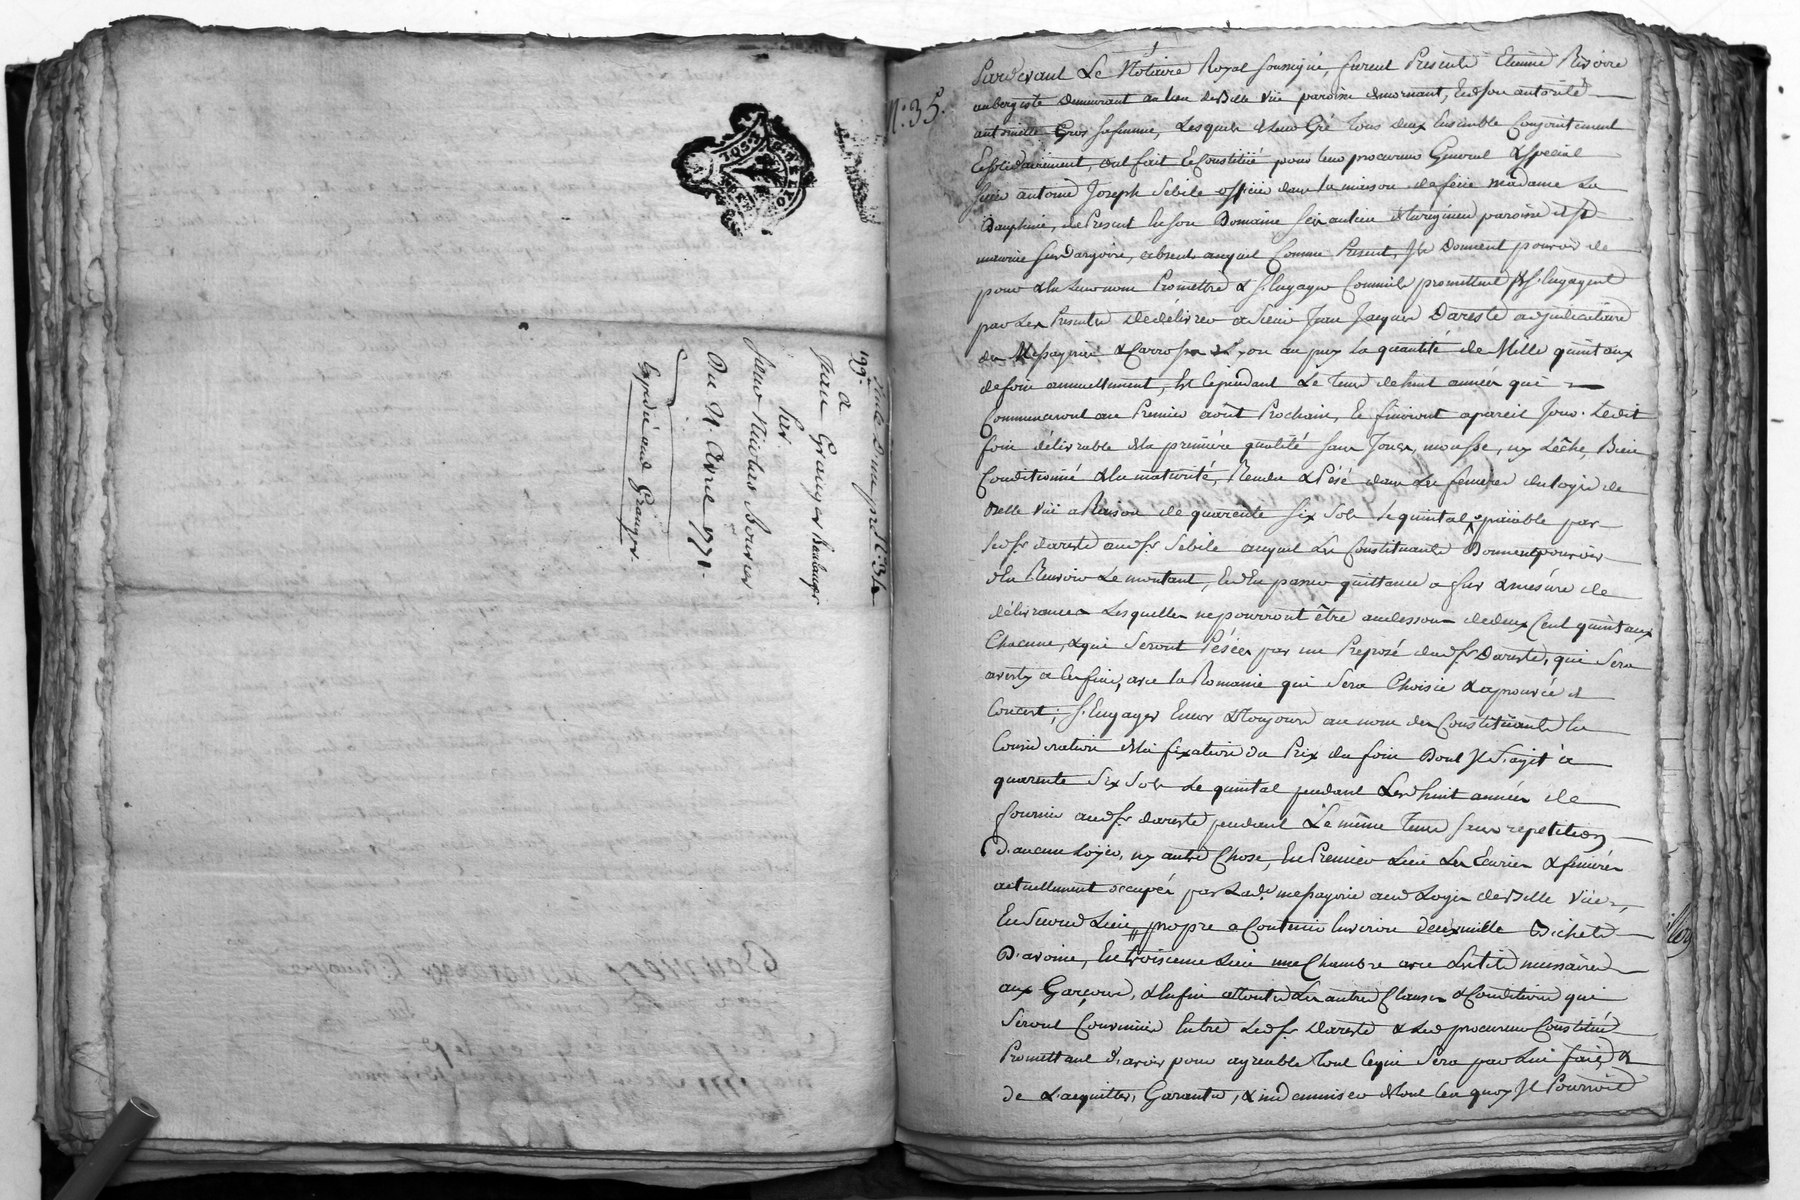 N.° 35.
Pardevant Le Notaire Royal soussigné, furent Presents Etienne Rivoire
aubergiste demeurant au lieu de Belle vüe paroisse de mornant, Et de son autorité
antoinette Gros sa femme, Lesquels de Leur Gré Tous deux Ensemble Conjointement
Et solidairement, ont fait Et Constitüé pour leur procureur General & special
sieur antoine Joseph Sebile officier dans la maison de feüe Madame La
Dauphine, de Present En son Domaine scis au lieu de paroisse de st
maurice sur dargoire, absent auquel Comme Present, Ils Donnent pouvoir de
pour & En Leur nom Promettre & s'Engager Comme ils promettent & s'Engagent
par Les Presentes de délivrer a Sieur Jean Jacques Dareste adjudicataire
des Messageries & Carrosses de Lyon au puy la quantité de Mille quintaux
de foin annuellement, Et Cependant Le Tems de huit années qui
Commenceront au Premier août Prochain, & finiront a pareil Jour. Ledit
foin délivrable de la première qualité sans Joncs, mousse, ny Lêche, Bien
Conditionné & en maturité, Rendu & Pésé dans Les fenieres du logis de
Belle Vüe a Raison de quarente six sols le quintal païable par
led. sr. dareste aud. sr. Sebile auquel Les Constituants Donnent pouvoir
d'En Recevoir Le montant, Et d'En passer quittance a fur & mesure de
délivrances Lesquelles ne pourront être au dessous de deux Cent quintaux
Chacune, & qui seront Pésées par un Preposé dud. sr. Dareste, qui sera
averty a Cet fin, avec la Romaine qui sera Choisie & aprouvée de
Concert; s'Engager Encor & Toujours au nom des Constituants En
Considération de la fixation du Prix du foin Dont Il s'agit à
quarente six sols Le quintal pendant Les huit années de
fournir aud. sr. dareste pendant Le même Tems sans repetition
d'aucun Loÿer, ny autre Chose, En Premier Lieu Les Ecuries & fenieres
actuellement occupées par Lad. messagerie aud. Logis de Belle Vüe,
En second Lieu propre a Contenir Environ deux mille Bichets
D'avoine, En troisieme Lieu une Chambre avec Les Lits necessaires
aux Garçons, & Enfin a toutes Les autres Clauses & Conditions qui
seront Convenües Entre Led. sr. Dareste & Led. procureur Constitüé
Promettant d'avoir pour agreable Tout Ce qui sera par Lui fait, &
de L'acquitter, Garantir, & indemniser de Tout Ce a quoy Il Pourroit
N.° 34
199.
a
Jean Granger Boulanger
Par
Sieur Nicolas Bourrier
Du 21 Avril 1771.
Expedié aud. Granger.